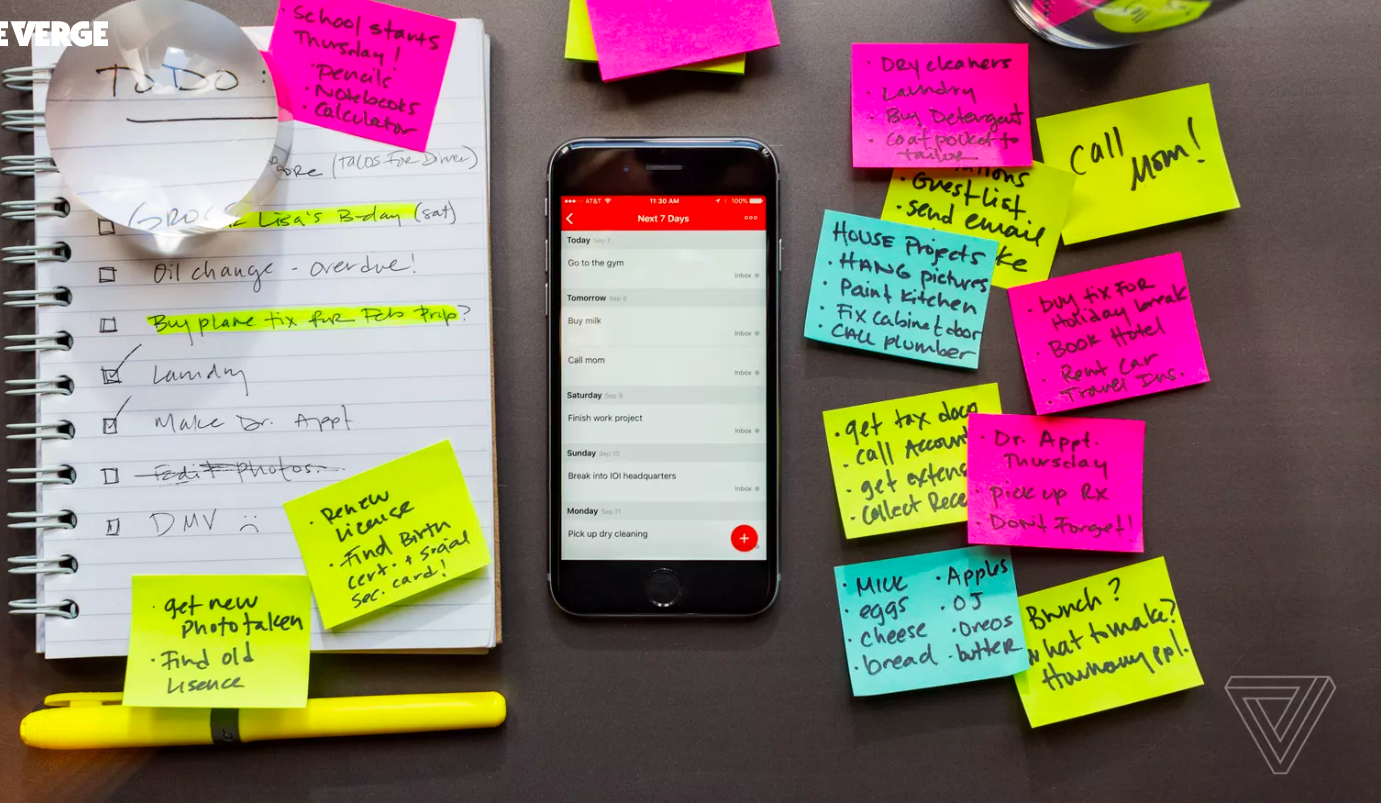 E VERGE
TO DO:
School starts
Thursday!
· Pencils
· Notebooks
· Calculator
(Tacos for Dinner)
Lisa's B-day (sat)
Oil change - overdue!
Buy plane tix for Feb trip?
Laundry
Make Dr. Appt
Edit photos
DMV :(
· Renew
License
· Find Birth
cert. + social
sec. card!
· get new
photo taken
· Find old
Lisence
AT&T 11:30 AM 100%
Next 7 Days
Today Sep 7
Go to the gym
Inbox
Tomorrow Sep 8
Buy milk
Inbox
Call mom
Inbox
Saturday Sep 9
Finish work project
Inbox
Sunday Sep 10
Break into IOI headquarters
Inbox
Monday Sep 11
Pick up dry cleaning
+
· Dry cleaners
· Laundry
· Buy Detergent
· Coat pocket to
tailor
Call
Mom!
Guest list
· send email
HOUSE Projects
· HANG pictures
· Paint Kitchen
· Fix cabinet door
· CALL plumber
· buy tix FOR
Holiday break
· Book Hotel
· Rent Car
· Travel Ins.
· get tax docs
· call Account
· get extens
· Collect Rece
· Dr. Appt.
Thursday
· pick up Rx
· Don't Forget!
· Milk · Apples
· eggs · OJ
· cheese · Oreos
· bread · butter
Brunch?
What to make?